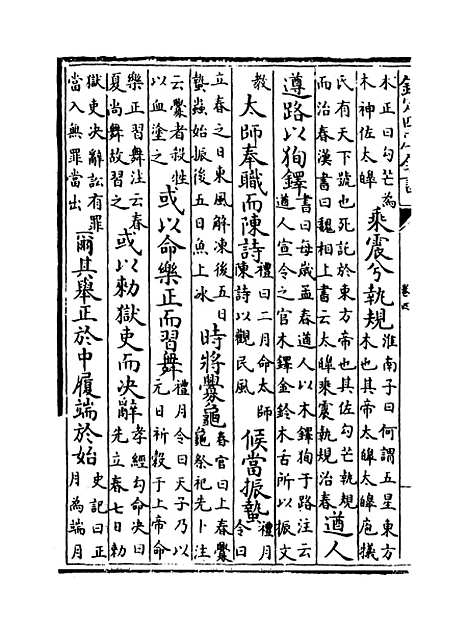 欽定四庫全書
水正曰勾芒為
木神佐太皞
乘震兮執規
淮南子曰何謂五星東方
木也其帝太皞太皞庖犧
氏有天下號也死託於東方帝也其佐勾芒執規
而治春漢書曰魏相上書云太皞乘震執規治春
遒人
遵路以狥鐸
書曰每歲孟春遒人以木鐸狥于路注云
遒人宣令之官木鐸金鈴木舌所以振文
教
太師奉職而陳詩
禮曰二月命太師
陳詩以觀民風
候當振蟄
禮月
令曰
立春之日東風解凍後五日
蟄蟲始振後五日魚上冰
時將釁龜
春官曰上春釁
龜祭祀先卜注
云釁者殺牲
以血塗之
或以命樂正而習舞
禮月令曰天子乃以
元日祈穀于上帝命
樂正習舞注云春
夏尚舞故習之
或以勅獄吏而决辭
孝經勾命决曰
先立春七日勅
獄吏决辭訟有罪
當入無罪當出
爾其舉正於中履端於始
史記曰正
月為端月